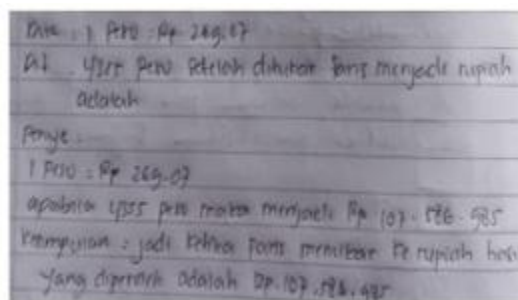 1 Peso : Rp 269.07
peso setelah ditukar Paris menjadi rupiah
adalah
Penye
1 Peso = Rp 269.07
apabila peso maka menjadi Rp 107.586.985
Kesimpulan : jadi ketika Paris menukar ke rupiah
yang diperoleh adalah Rp.107.586.985